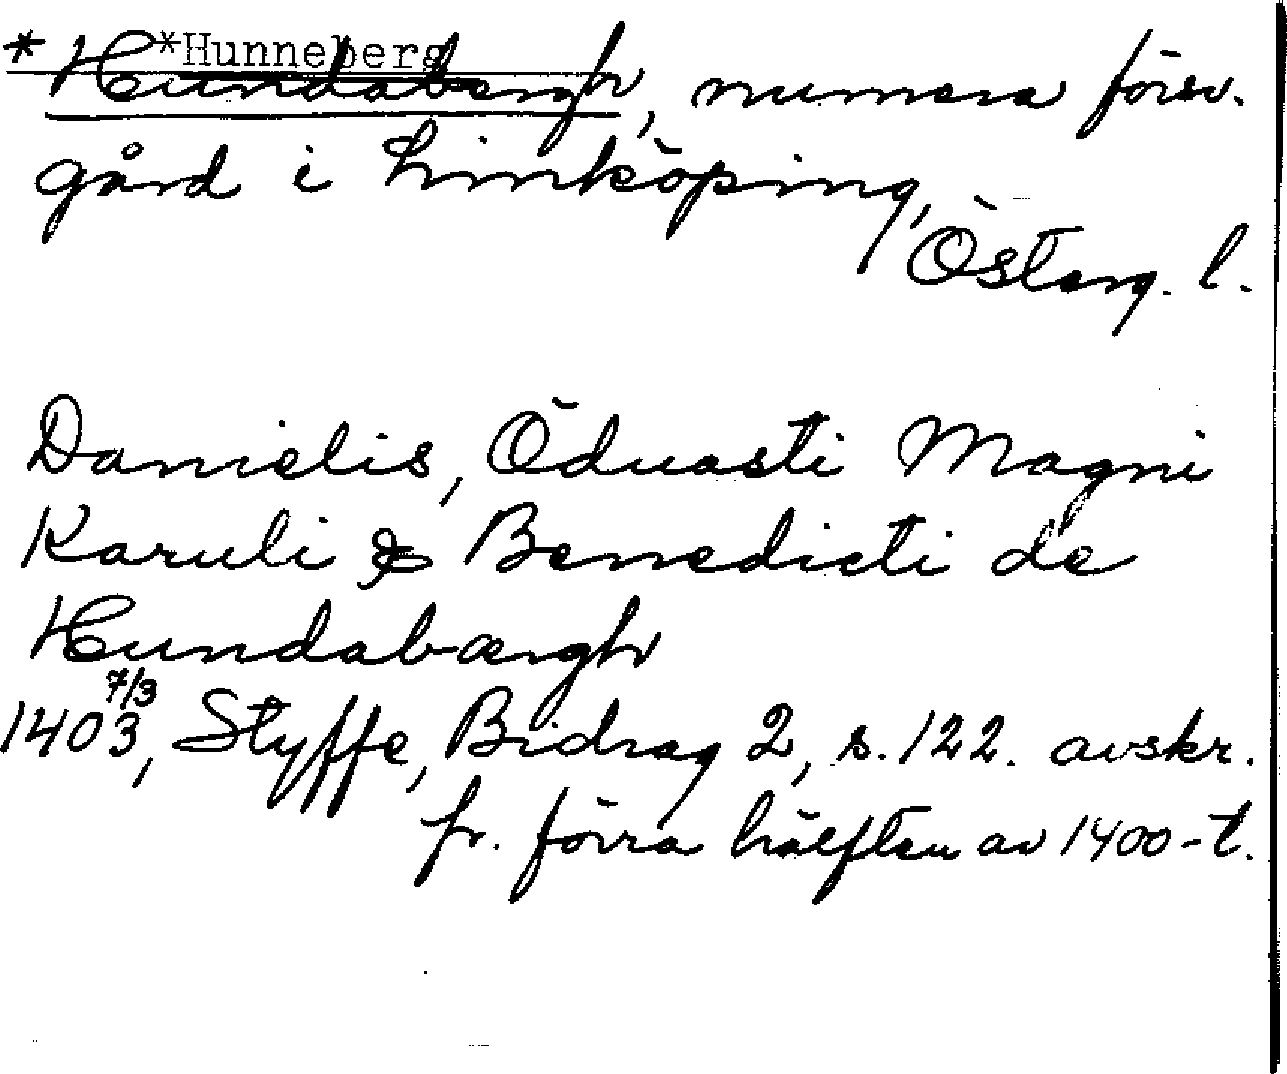 *Hunneberg
* Hundabergh, numera försv.
gård i Linköping,
Österg. l.
Danielis, Öduasti Magni
Karuli & Benedicti de
Hundabærgh
1403 7/3, Styffe, Bidrag 2, s. 122. avskr.
fr. förra hälften av 1400-t.